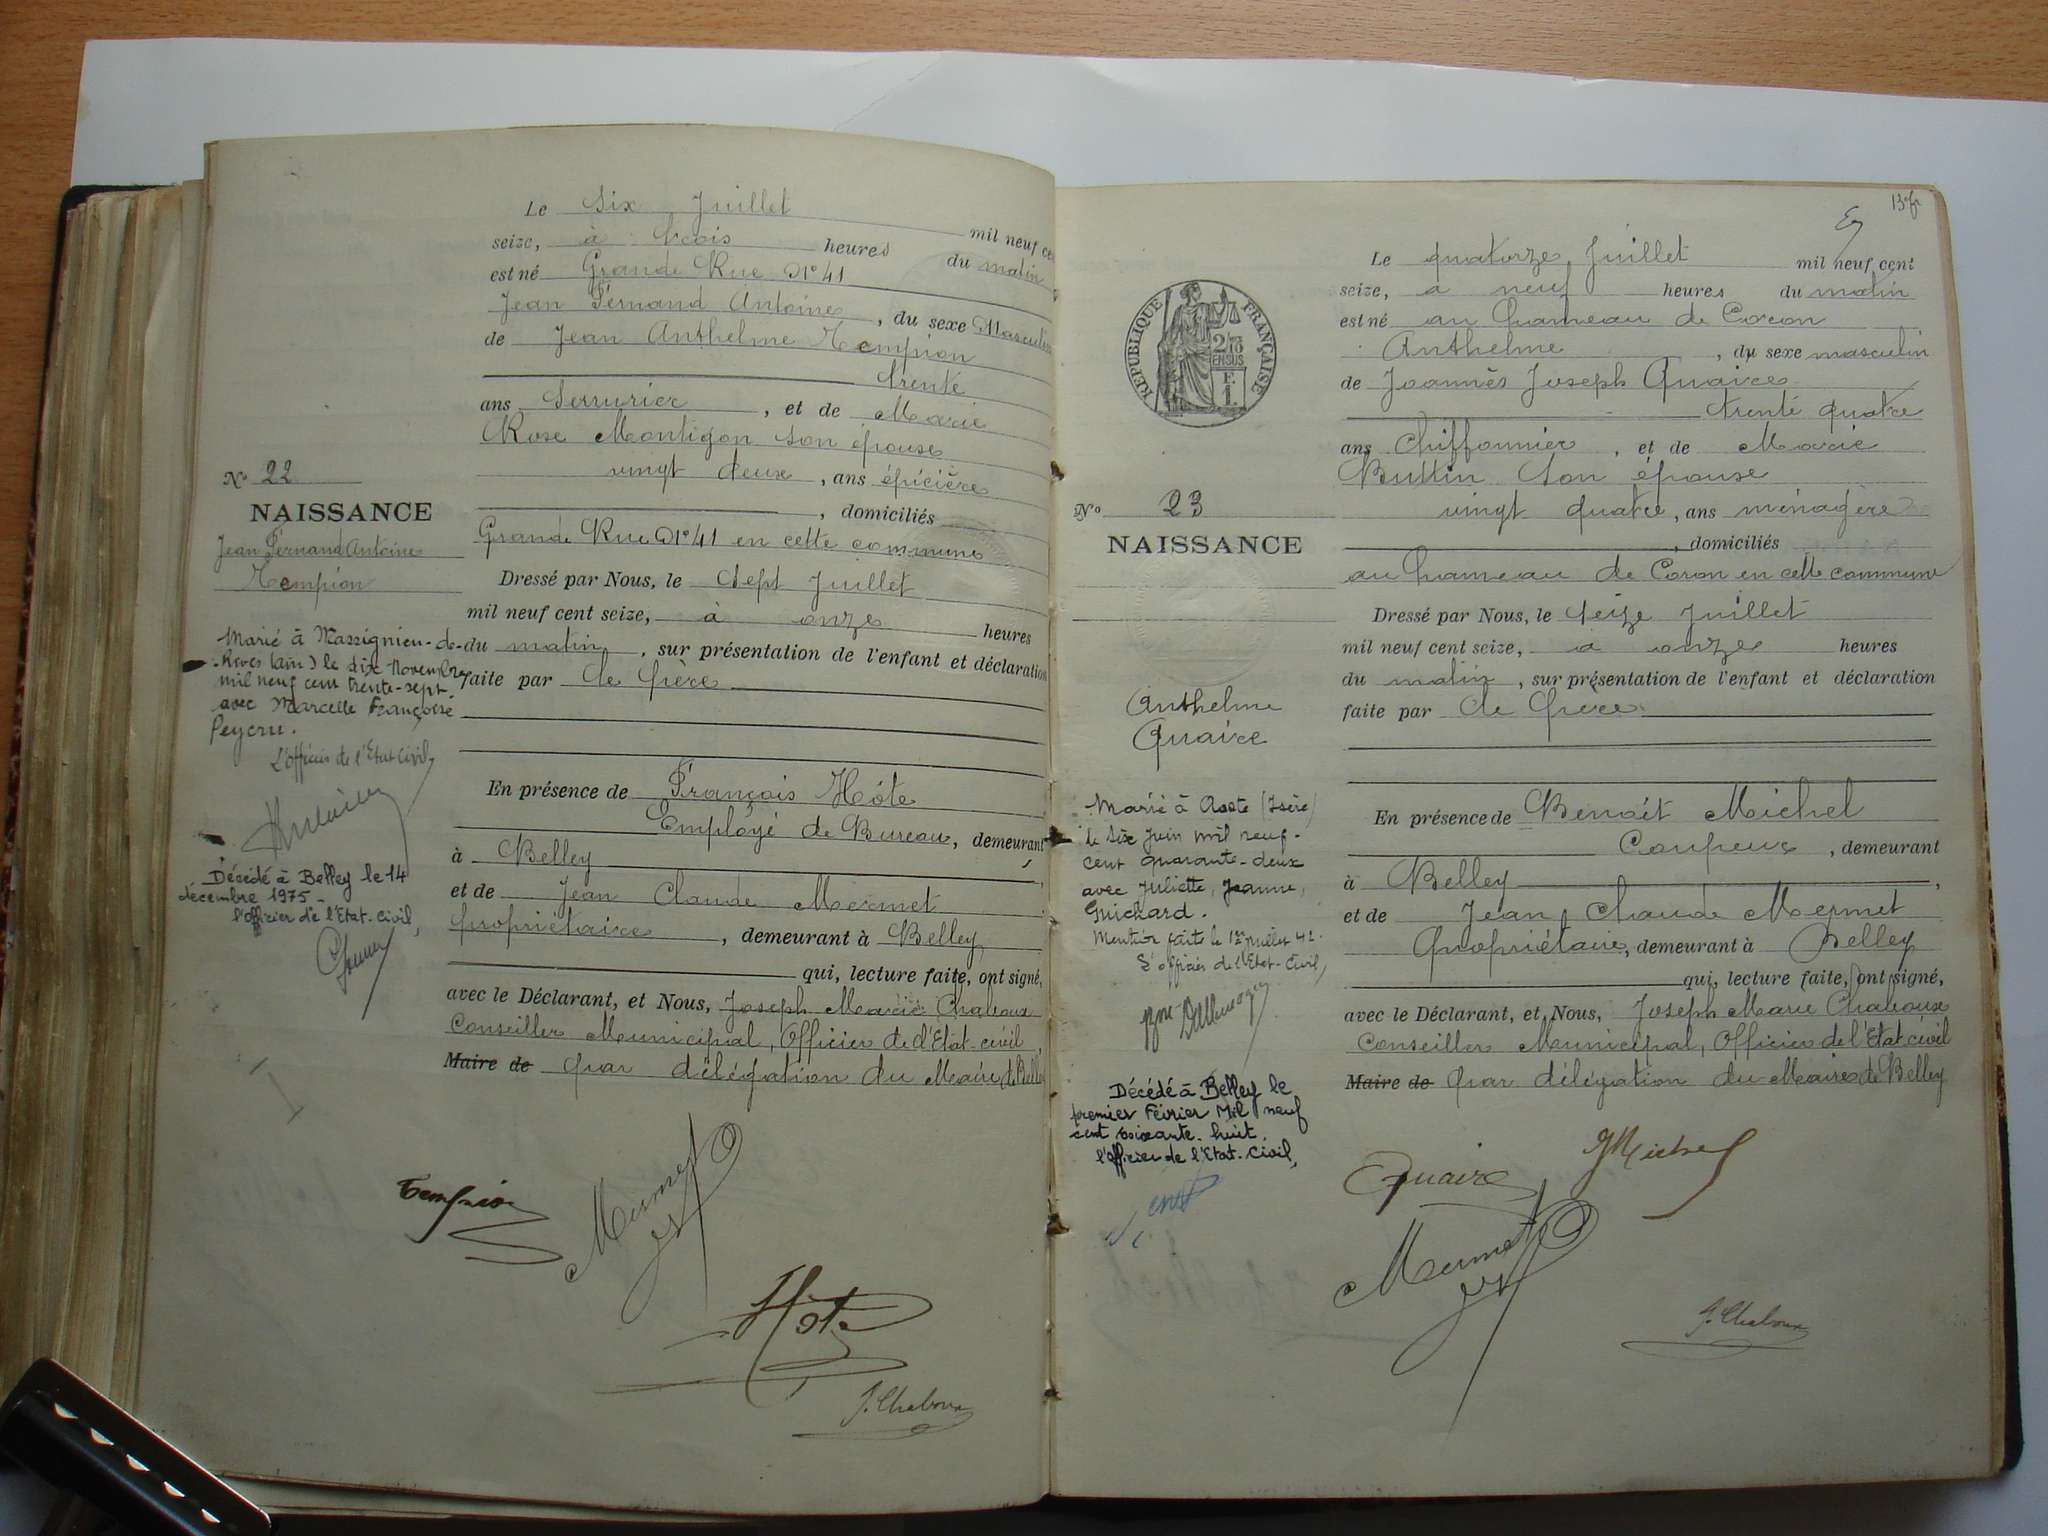 Le six Juillet mil neuf ce
seize, à trois heures du matin
est né Grande Rue N° 41
Jean Fernand Antoine, du sexe Masculin
de Jean Anthelme Tempion
trente
ans Serrurier, et de Marie
Rose Montigon son épouse
vingt deux, ans épicière
, domiciliés
Grande Rue N° 41 en cette commune
Dressé par Nous, le Sept Juillet
mil neuf cent seize, à onze heures
du matin, sur présentation de l'enfant et déclaration
faite par le Père
En présence de François Hôte
Employé de Bureau, demeurant
à Belley,
et de Jean Claude Mermet
propriétaire, demeurant à Belley
qui, lecture faite, ont signé,
avec le Déclarant, et Nous, Joseph Marie Chaboux
Conseiller Municipal, Officier de l'Etat-civil,
Maire de par délégation du Maire de Belley
N° 22
NAISSANCE
Jean Fernand Antoine
Tempion
Marié à Massignieu-de-
Rives (ain) le six Novembre
mil neuf cent trente-sept
avec Marcelle Françoise
Peycru.
L'officier de l'Etat Civil,
Décédé à Belley le 14
décembre 1975 -
l'officier de l'Etat-Civil,
Tempion
Mermet
Hôte
J. Chaboux
Le quatorze Juillet mil neuf cent
seize, à neuf heures du matin
est né au hameau de Coron
Anthelme, du sexe masculin
de Joannès Joseph Quaire
trente quatre
ans Chiffonnier, et de Marie
Buttin son épouse
vingt quatre, ans ménagère
, domiciliés
au hameau de Coron en cette commune
Dressé par Nous, le seize Juillet
mil neuf cent seize, à onze heures
du matin, sur présentation de l'enfant et déclaration
faite par le Père
En présence de Benoit Michel
Coupeur, demeurant
à Belley,
et de Jean Claude Mermet
Propriétaire, demeurant à Belley
qui, lecture faite, ont signé,
avec le Déclarant, et Nous, Joseph Marie Chaboux
Conseiller Municipal, Officier de l'Etat civil
Maire de par délégation du Maire de Belley
RÉPUBLIQUE FRANÇAISE
2/10
EN SUS
F.
1.
No 23
NAISSANCE
Anthelme
Quaire
Marié à Aoste (Isère)
le six Juin mil neuf-
cent quarante-deux
avec Juliette, Jeanne,
Guichard.
Mention faite le 1er juillet 42.
L'officier de l'Etat-Civil,
Décédé à Belley le
premier Février Mil neuf
cent soixante-huit.
l'officier de l'Etat-Civil,
Quaire
Michel
Mermet
J. Chaboux